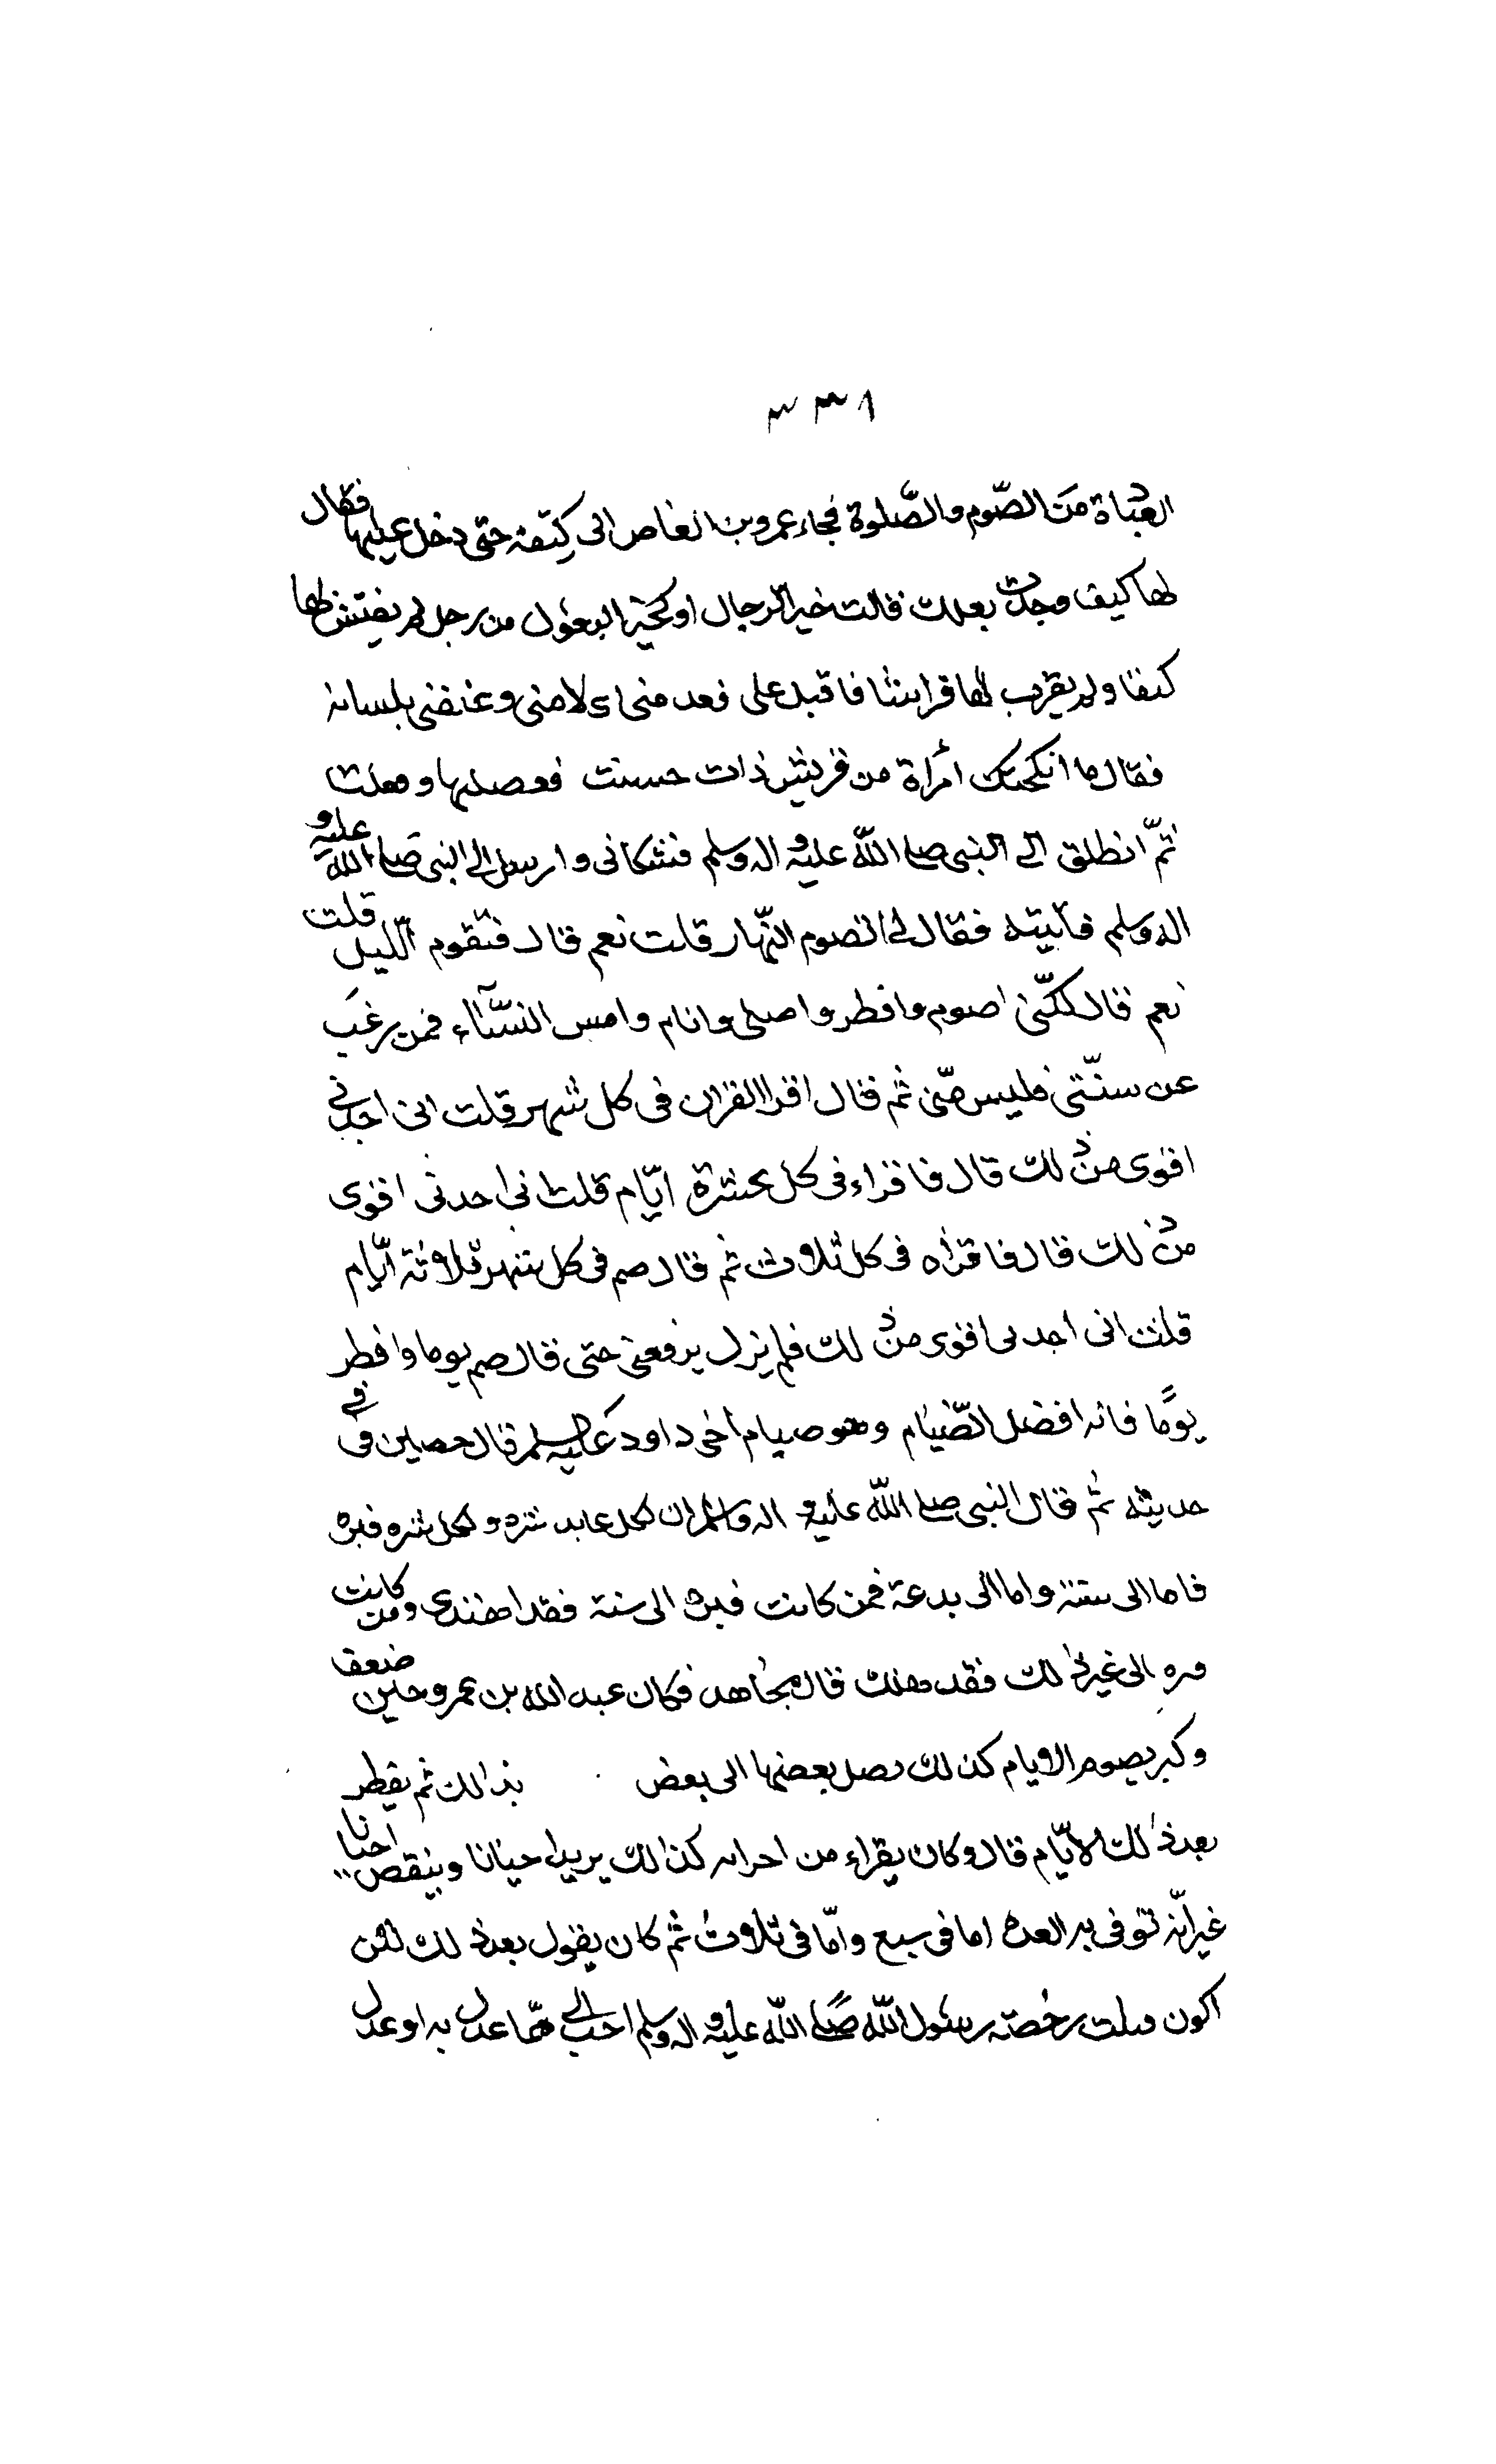 ٣٣٨
العباة من الصّوم والصّلوة فجاء عمرو بن العاص الى كتفه حتى دخل عليها فقال
لها كيف وجدت بعلك قالت خير الرجال او كخير البعول من رجل لم يفتش لها
كنفا ولم يقرب لها فراشا فاقبل على فعد منى لامنى وعنفنى بلسانه
فقال ما انكحتك أمراة من قريش ذات حسنت فعصلها وفعلت
ثمّ انطلق الى النبى صلى اللّه عليه واله وسلم فشكانى وارسل الى النبى صلى اللّه عليه و
اله وسلم فاتيته فقال لى اتصوم النّهار قلت نعم قال فتقوم اللّيل قلت
نعم قال لكنّى اصوم وافطر واصلى وانام وامس النسّآاء فمن يرغب
عن سنّتى فليس منّى ثم قال اقرا القران فى كل شهر قلت انى اجدنى
اقوى من ذلك قال فاقراء فى كل عشرة ايّام قلت انى اجدنى اقوى
من ذلك قال فاقراه فى كل ثلاث ثم قال صم فى كل شهر ثلاثة ايّام
قلت انى اجدنى اقوى من ذلك فلم يزل يرفعنى حتى قال صم يوما وافطر
يومًا فانه افضل الصّيام وهو صيام أخى داود عليه السلم قال حصين فى فى
حديثه ثم قال النبى صلى اللّه عليه و اله وسلم ان لكل عابد شره ولكل شره فبره
فاما الى سنة واما الى بدعة فمن كانت فبره الى سنة فقد اهتدى ومن كانت
مره الى غير ذلك فقد هلك قال مجاهد فكان عبد الله بن عمرو حين ضعف
وكبر يصوم الايام كذلك يصل بعضها الى بعض بذالك ثم يفطر
بعد ذلك الايّام قال وكان يقراء من احزابه كذالك يريد احيانا وينقص احيانا
غير انّه توفى به العده اما فى سبع وامّا فى ثلاث ثم كان يقول بعد ذلك لئن
اكون قبلت رخصة رسول اللّه صلى اللّه عليه واله وسلم احب الى ممّا عدل به او عدل